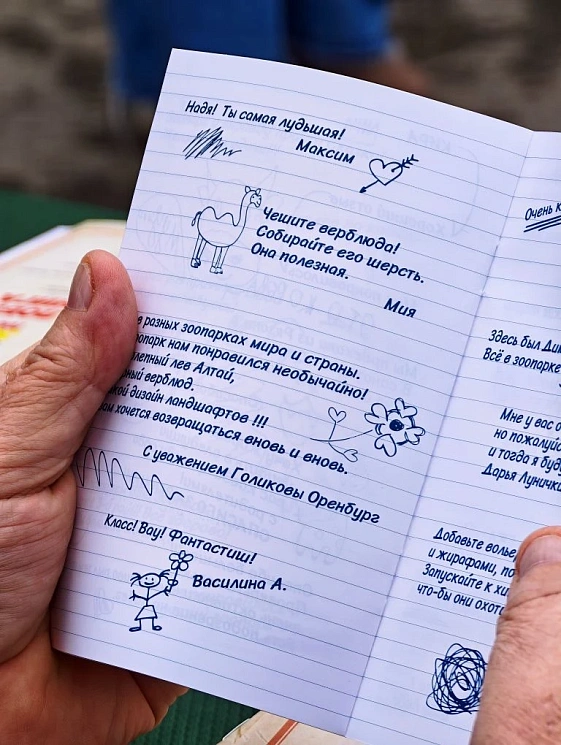 Надя! Ты самая лудьшая!
Максим
Чешите верблюда!
Собирайте его шерсть.
Она полезная.
Мия
разных зоопарках мира и страны.
нам понравился необычайно!
лев Алтай,
верблюд.
дизайн ландшафтов !!!
хочется возвращаться вновь и вновь.
С уважением Голиковы Оренбург
Класс! Вау! Фантастиш!
Василина А.
Очень
Здесь был
Всё в зоопарке
Мне у вас
но
и тогда я
Дарья
Добавьте
и жирафами,
Запускайте к
что-бы они